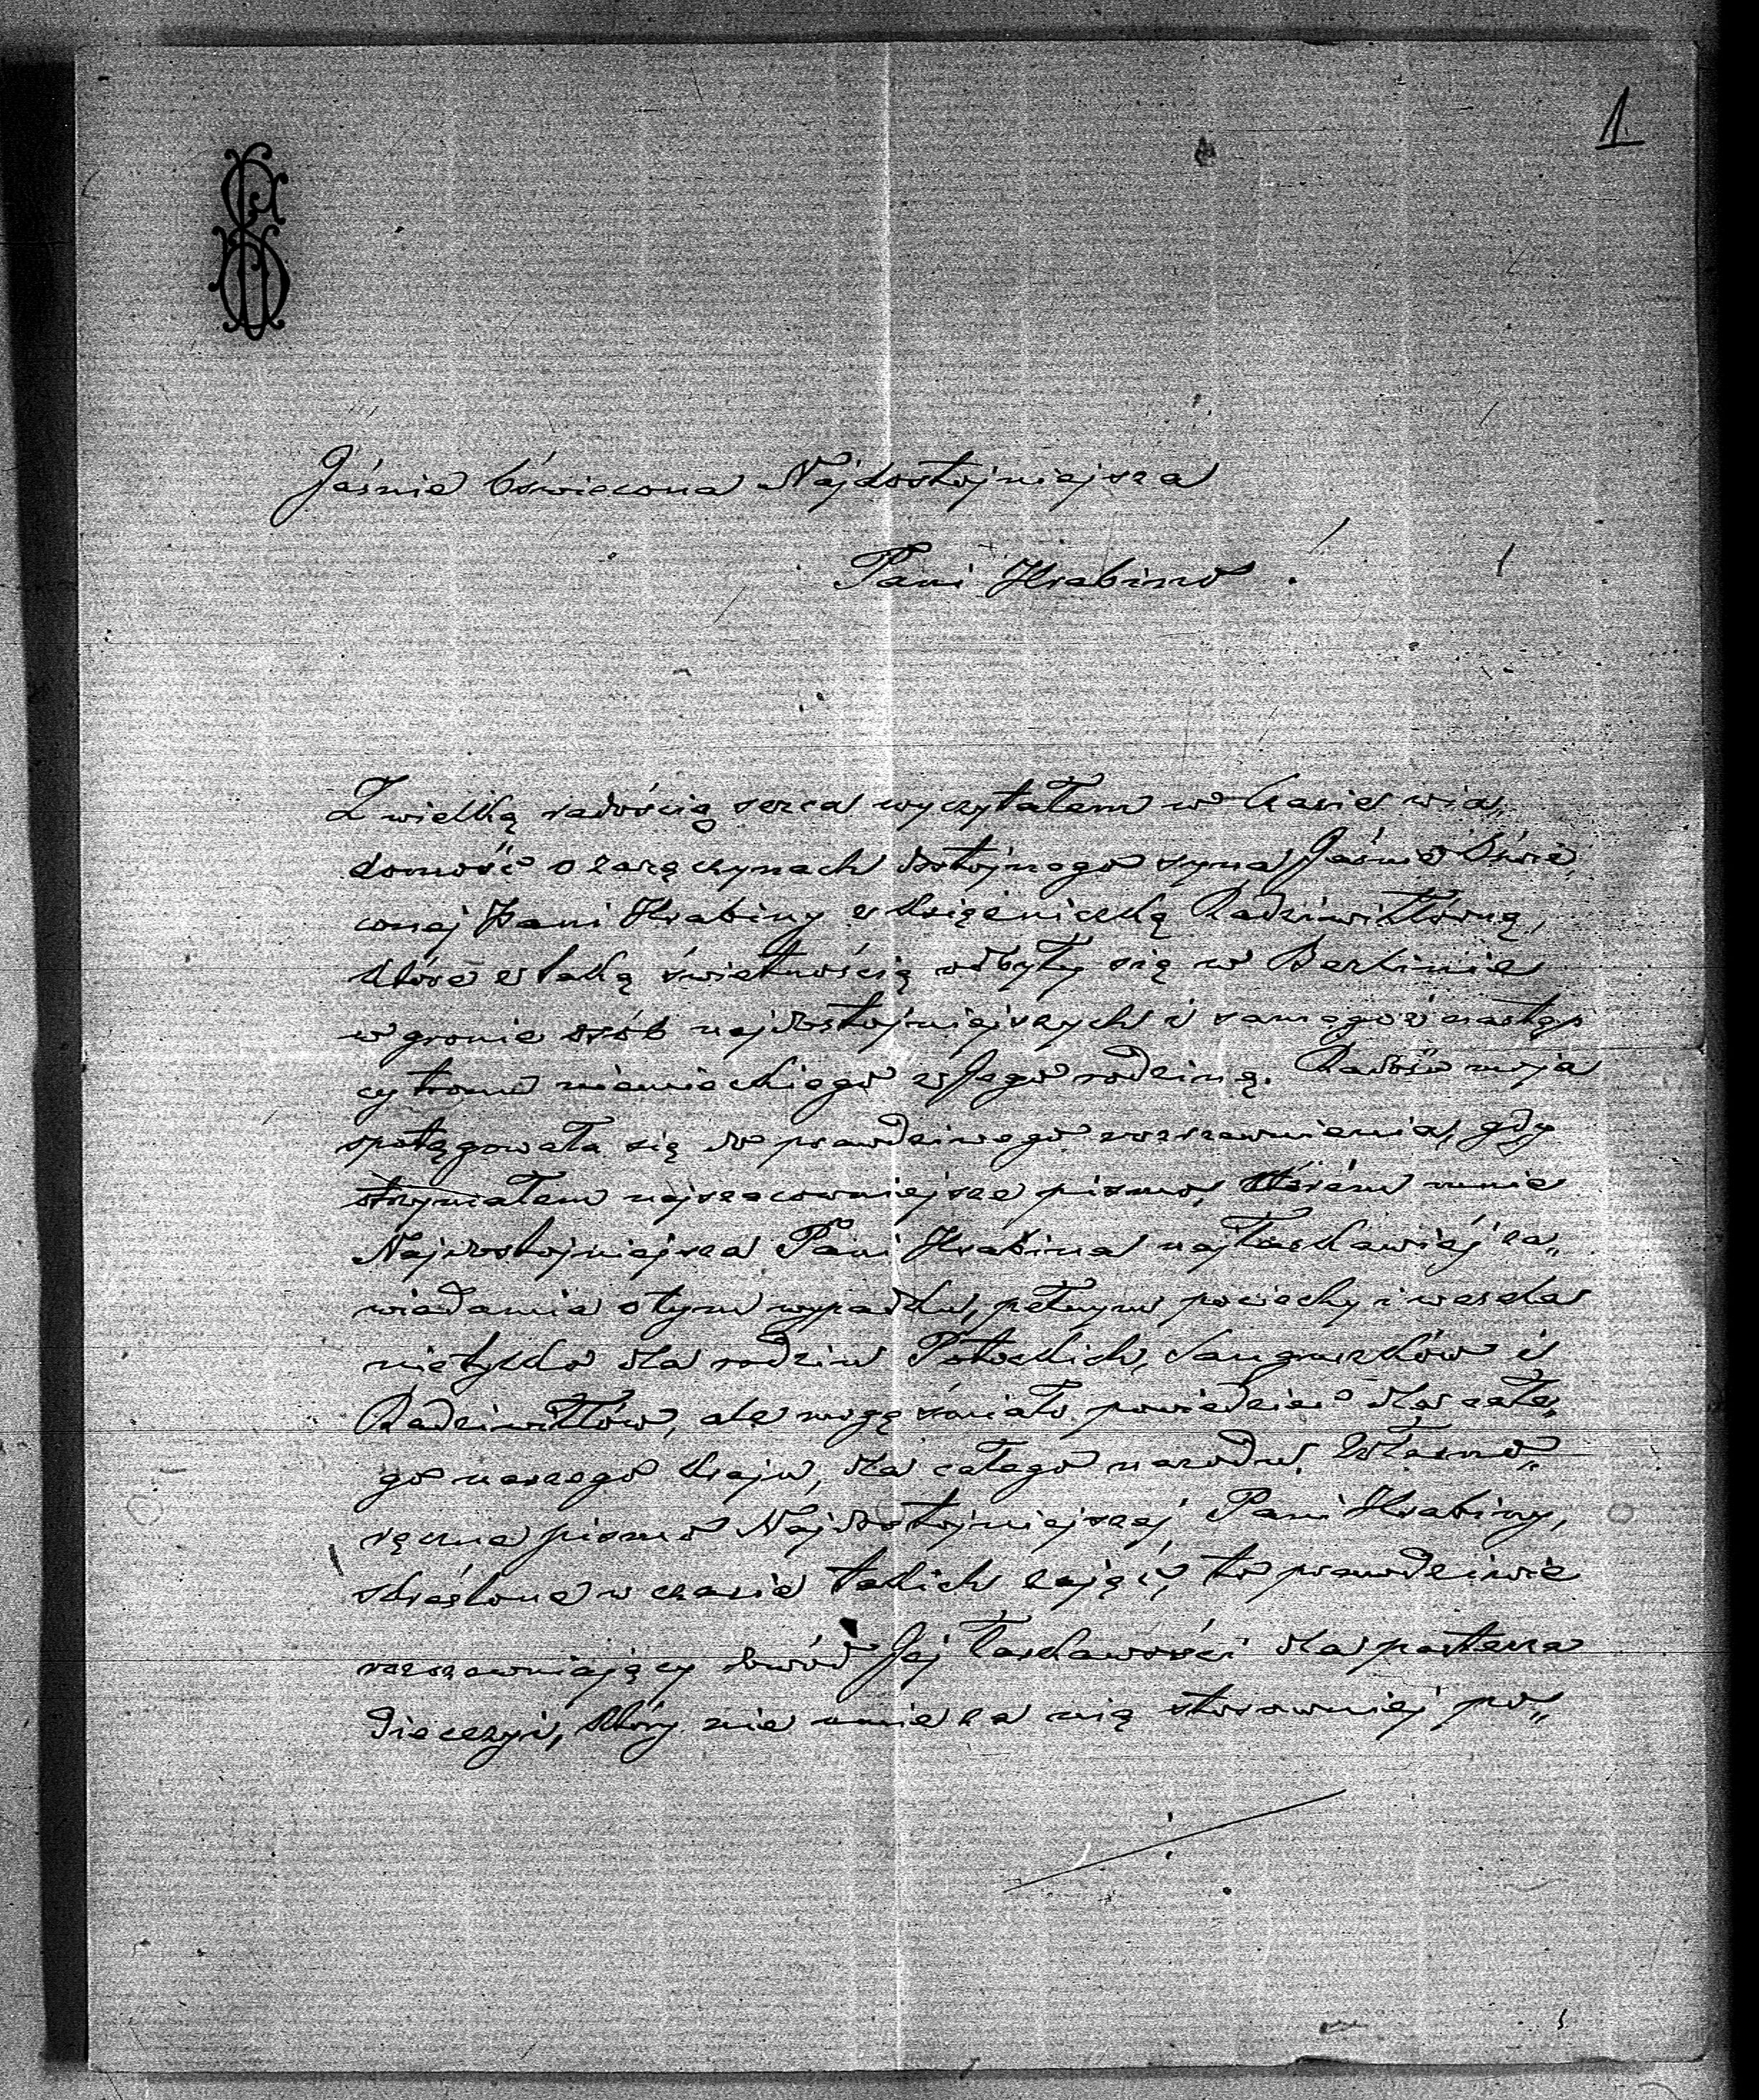 1.
Jaśnie Oświecona Najdostojniejsza
Pani Hrabino
Z wielką radością serca wyczytałem w Czasie wia„
domość o zaręczynach dostojnego syna Jaśnie Oświe„
conej Pani Hrabiny z Księżniczką Radziwiłłówną,
które z taką świetnością odbyły się w Berlinie
w gronie osób najdostojniejszych i samegoż następ
cy tronu niemieckiego z Jego rodziną. Radość moja
spotęgowała się do prawdziwego rozrzewnienia, gdy
otrzymałem najszacowniejsze pismo, którém mnie
Najdostojniejsza Pani Hrabina najłaskawiéj za„
wiadamia o tym wypadku, pełnym pociechy i wesela
nietylko dla rodzin Potockich, Sanguszków i
Radziwiłłów, ale mogę śmiało powiedzieć dla całe„
go naszego kraju, dla całego narodu. Własno„
ręczne pismo Najdostojniejszej Pani Hrabiny,
skreślone w czasie takich zajęć, to prawdziwie
rozrzewniający dowód Jej łaskawości dla pasterza
diecezyi, który nie umie za nią stosowniej po„